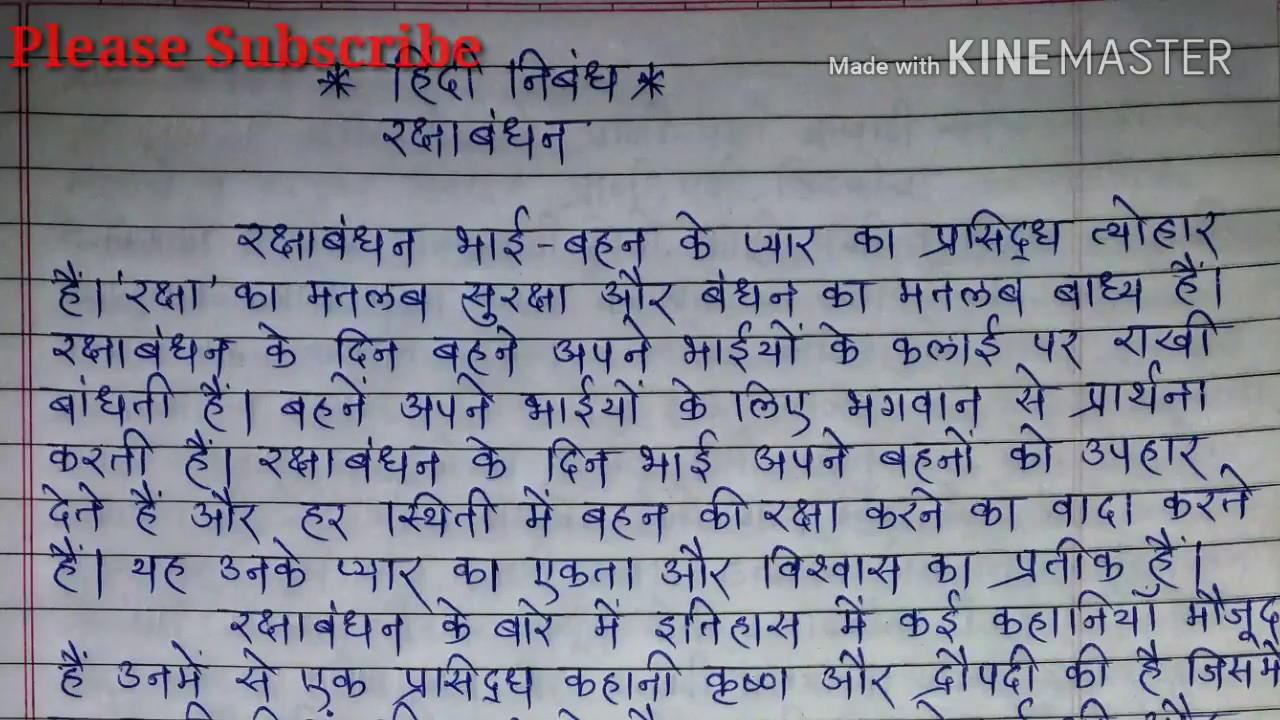 Please Subscribe
Made with KINEMASTER
* हिंदी निबंध *
रक्षाबंधन
रक्षाबंधन भाई-बहन के प्यार का प्रसिद्ध त्योहार
हैं। 'रक्षा' का मतलब सुरक्षा और बंधन का मतलब बाध्य हैं।
रक्षाबंधन के दिन बहने अपने भाईयों के कलाई पर राखी
बांधती हैं। बहनें अपने भाईयों के लिए भगवान से प्रार्थना
करती हैं। रक्षाबंधन के दिन भाई अपने बहनों को उपहार
देते हैं और हर स्थिती में बहन की रक्षा करने का वादा करते
हैं। यह उनके प्यार का एकता और विश्वास का प्रतीक हैं।
रक्षाबंधन के बारे में इतिहास में कई कहानियाँ मौजूद
हैं उनमें से एक प्रसिद्ध कहानी कृष्ण और द्रौपदी की है जिसमें